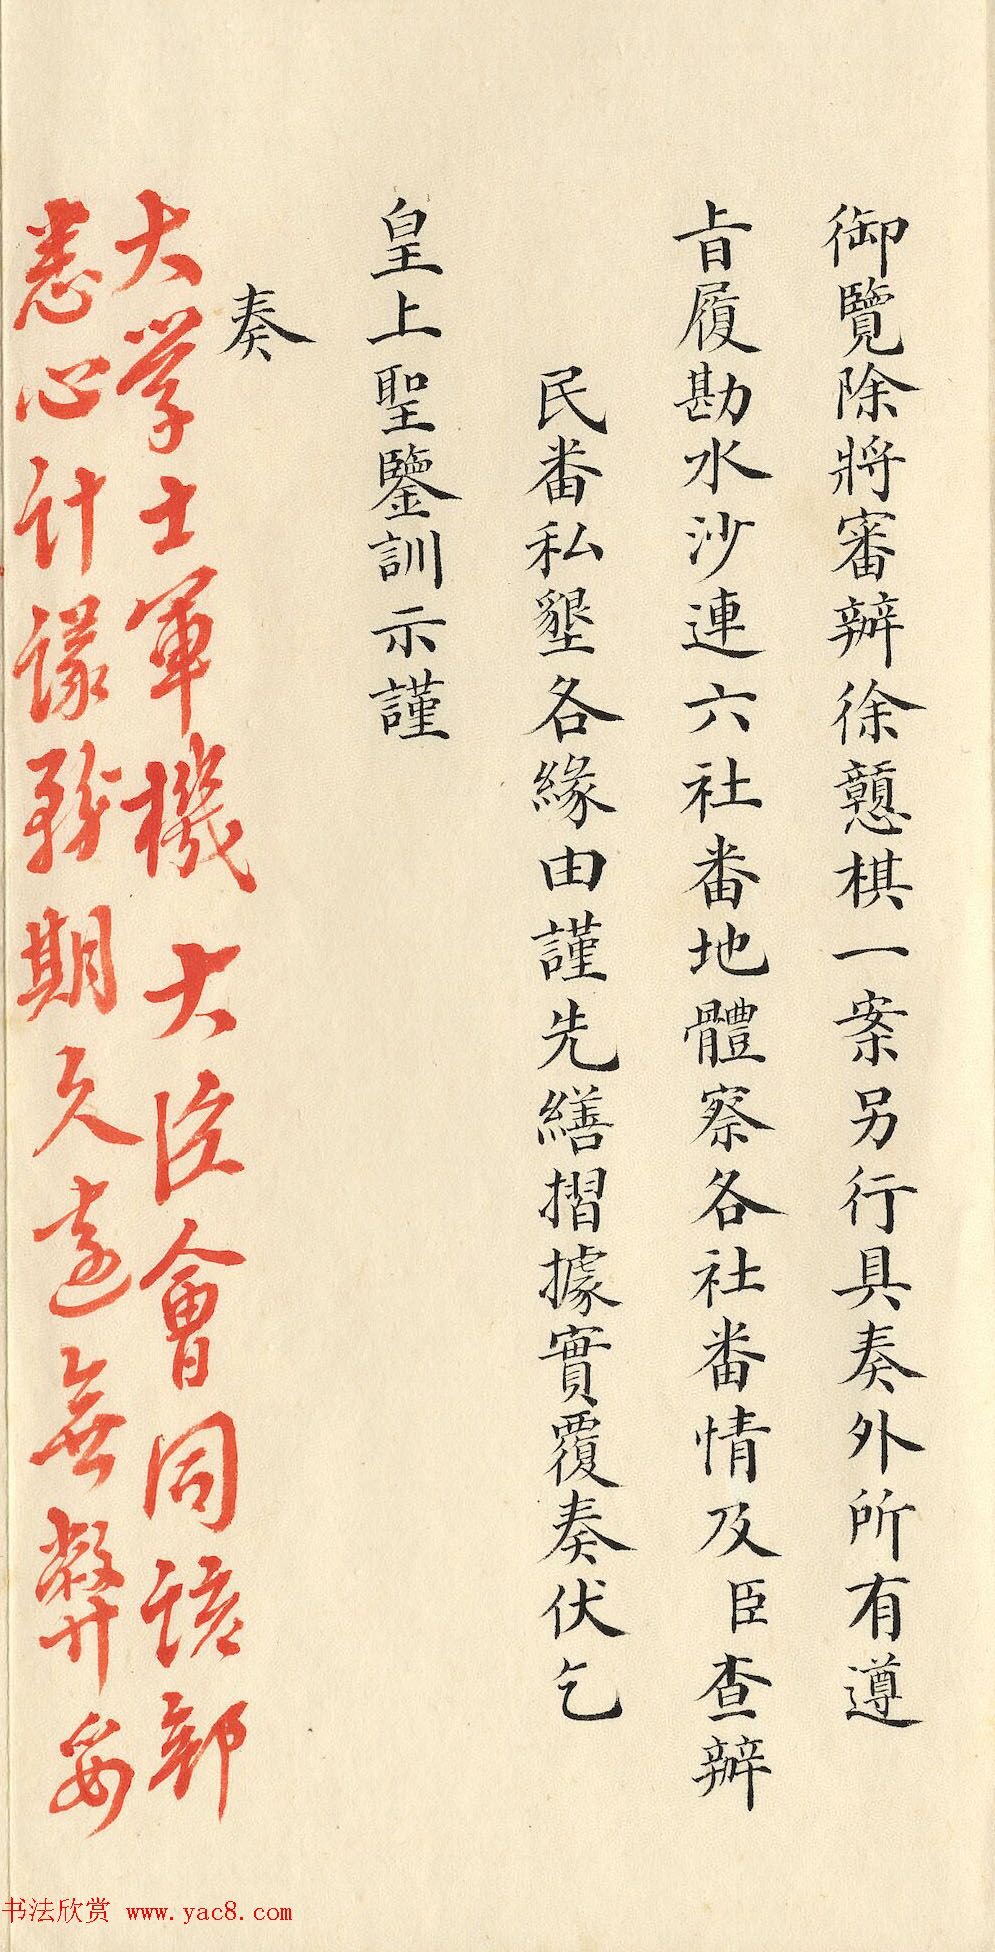 御覽除將審辦徐戇棋一案另行具奏外所有遵
旨履勘水沙連六社番地體察各社番情及臣查辦
民番私墾各緣由謹先繕摺據實覆奏伏乞
皇上聖鑒訓示謹
奏
大学士軍機大臣會同該部
悉心計議務期久遠無弊妥
书法欣赏 www.yac8.com